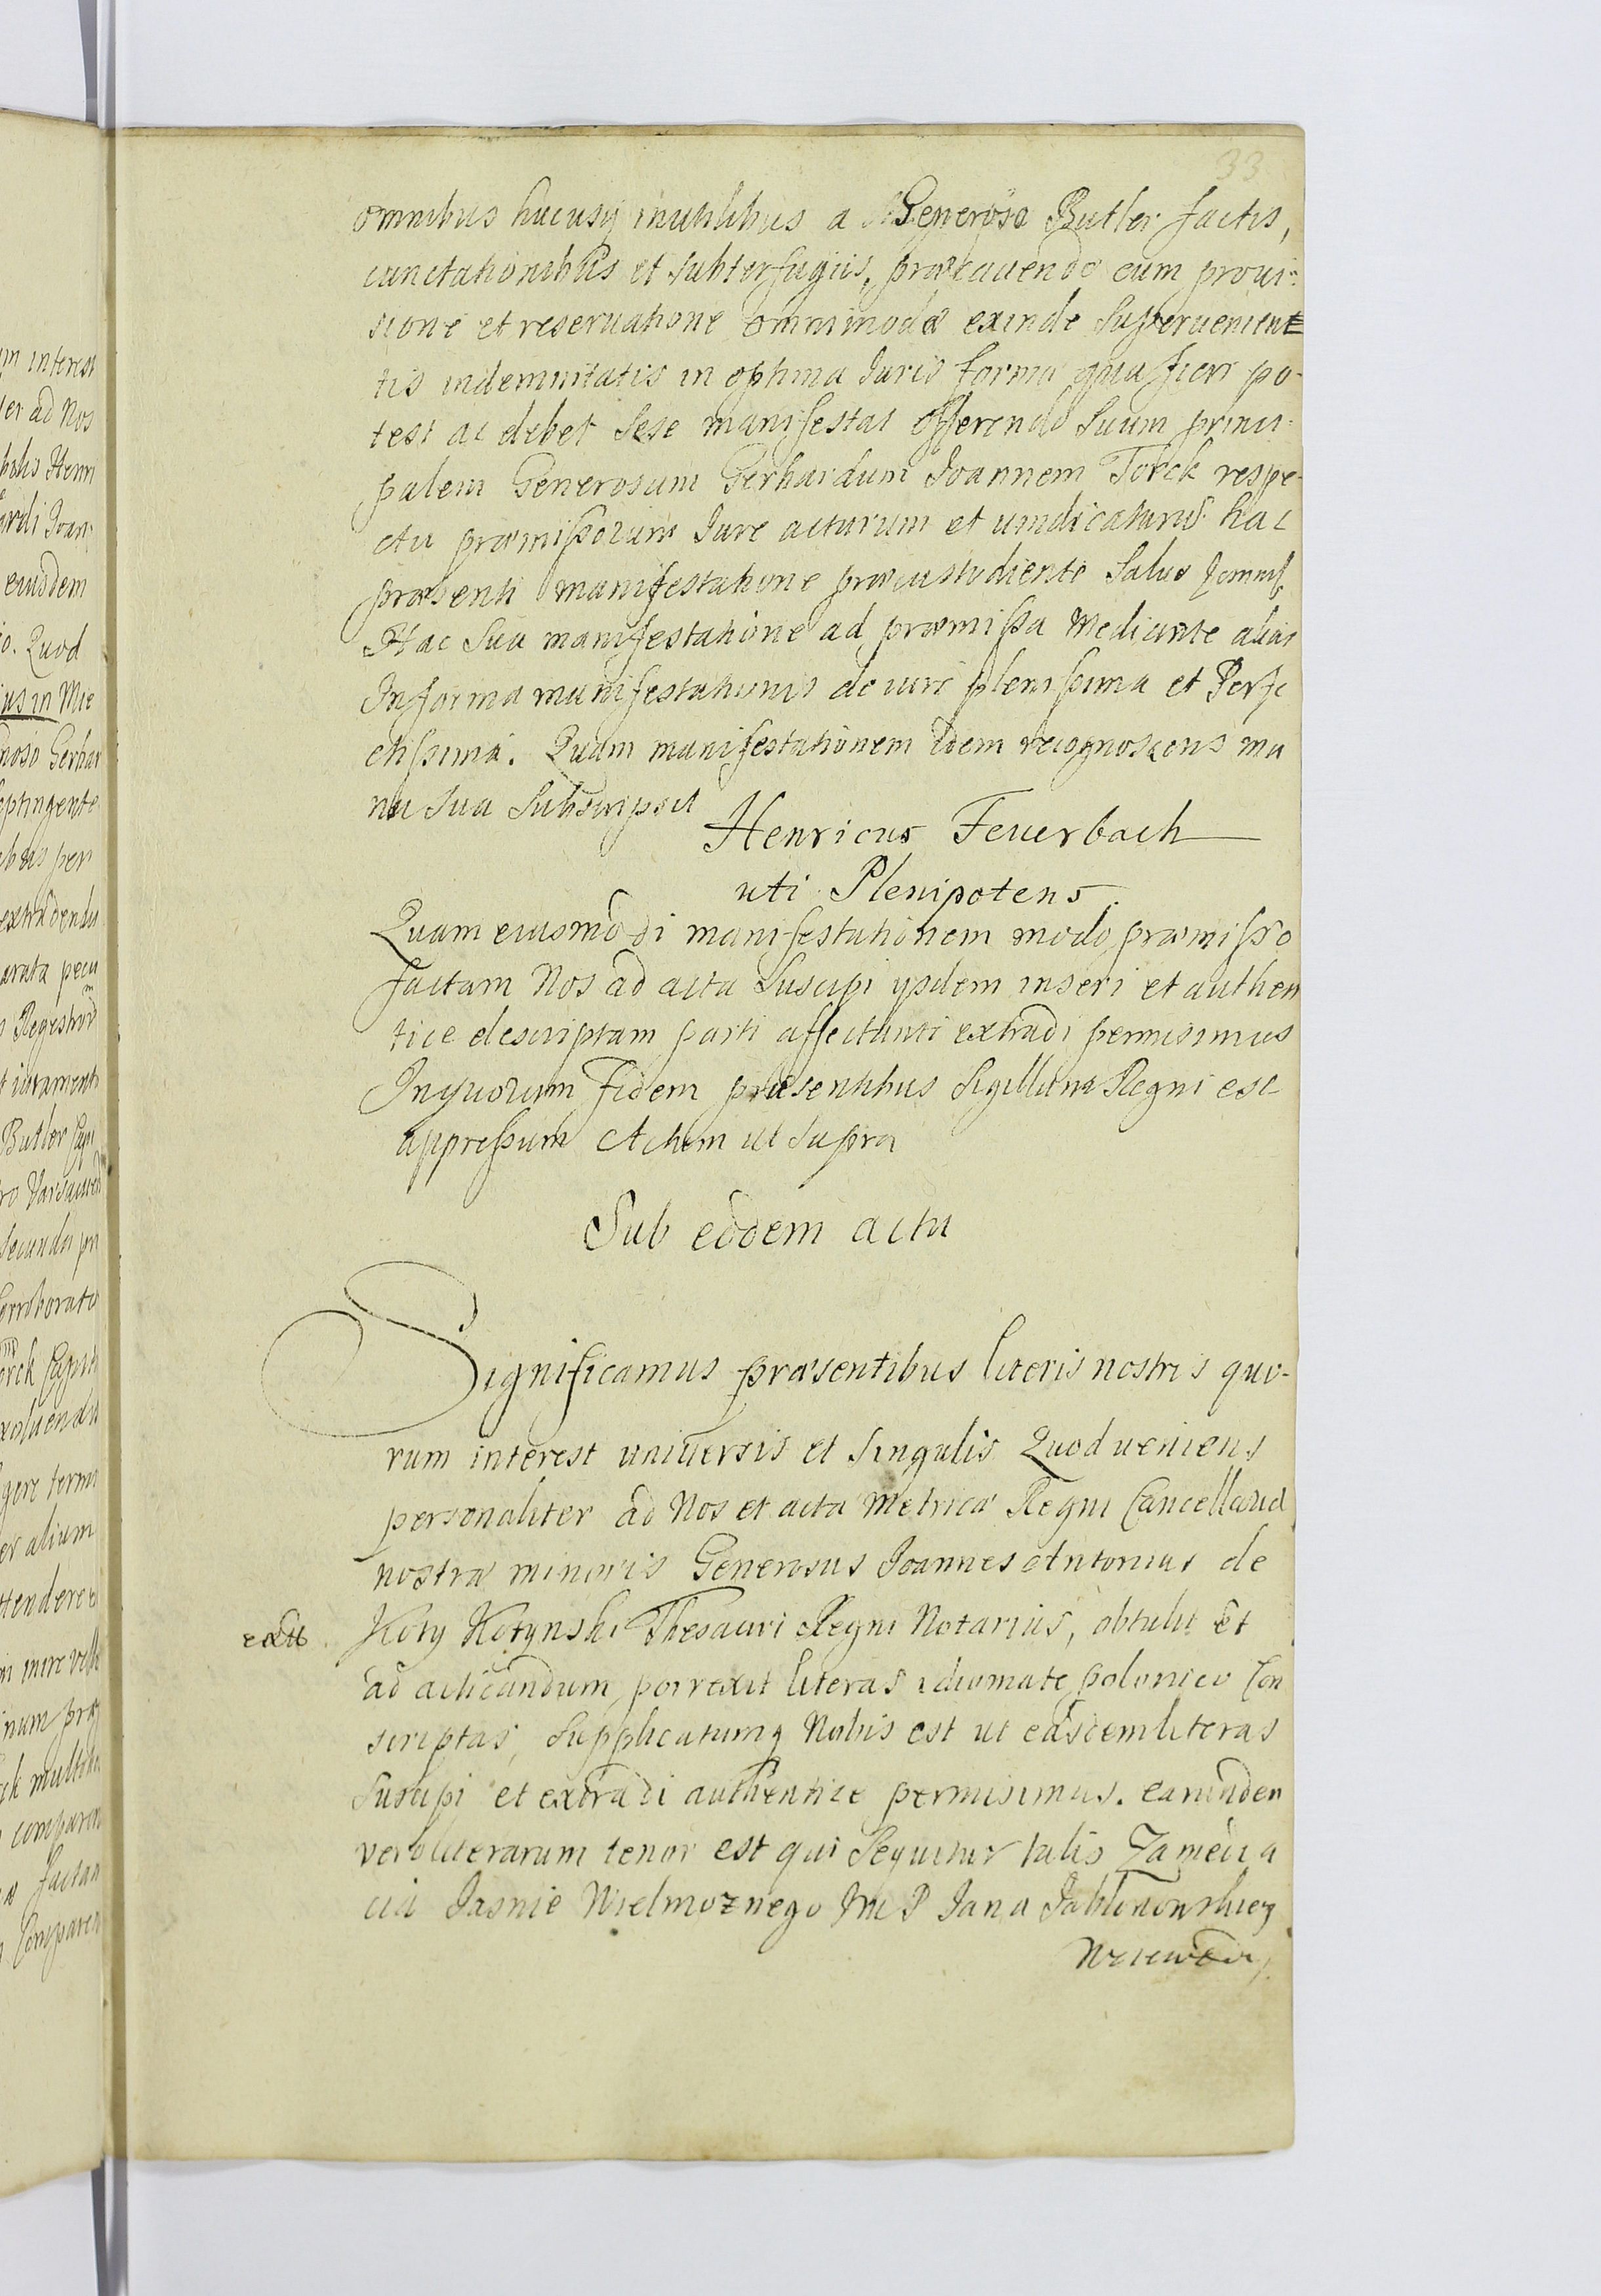 33
omnibus hucusq inutilibus a Generoso Butler factis,
cunctationibus et subterfugiis, præcavendo cum provi-
sione et reservatione omnimodæ exinde supervenient
tis indemnitatis in optima Iuris forma qua fieri po-
test ac debet Sese manifestat offerendo suum princi-
palem Generosum Gerhardum Joannem Torck respe-
ctu præmissorum Iure acturum et vindicaturum hac
præsenti manifestatione præcustodiente Salvo
Hac sua manifestatione ad præmissa Mediante alias
In forma manifestationis de iure plenissima et Perfe
ctissima. Quam manifestationem idem recognoscens ma
nu sua subscripsit
Henricus Feuerbach
uti Plenipotens.
Quam eiusmodi manifestationem modo præmisso
factam Nos ad acta suscipi ysdem inseri et authen
tice descriptam parti affectanti extradi permisimus
In quorum fidem præsentibus Sigillum Regni est
appressum Actum ut supra
Sub eodem actu
Significamus præsentibus literis nostris quo-
rum interest universis et singulis Quod veniens
personaliter ad Nos et acta Metricæ Regni Cancellariæ
nostræ minoris Generosus Joannes Antonius de
Koty Kotynski Thesauri Regni Notarius, obtulit et
ad acticandum porrexit literas idiomate polonico con
scriptas, supplicatumq Nobis est ut easdem literas
suscipi et extradi authentice permisimus. earunden
vero literarum tenor est qui sequitur talis Zamėcia
cia Jasnie Wielmoznego Im P Jana Jabłonowskieg